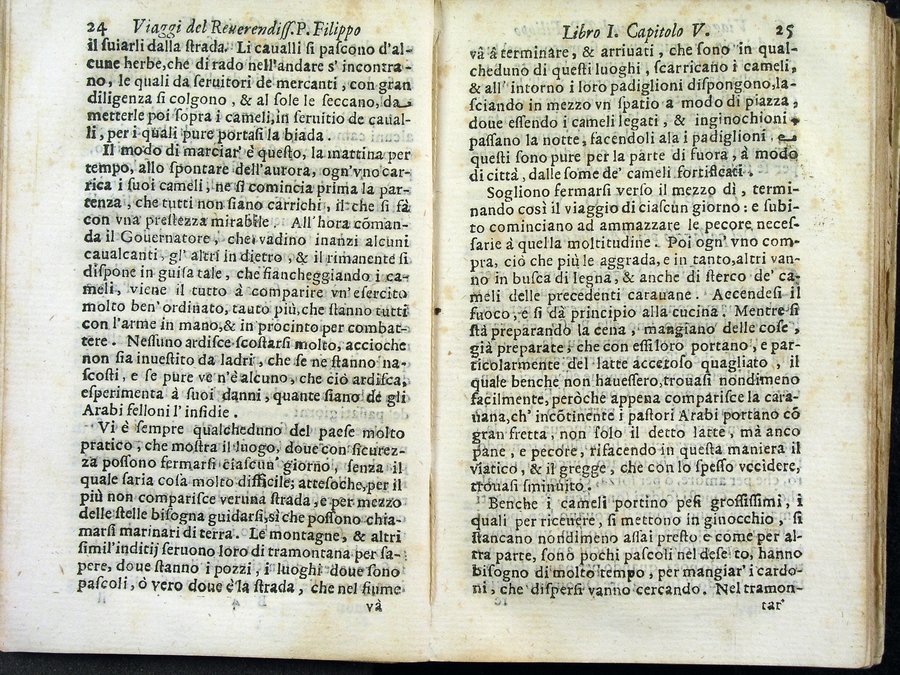 24 Viaggi del Reuerendiss. P. Filippo
il suiarli dalla strada. Li caualli si pascono d'al-
cune herbe, che di rado nell'andare s' incontra-
no, le quali da seruitori de mercanti, con gran
diligenza si colgono, & al sole le seccano, da
metterle poi sopra i cameli, in seruitio de caual-
li, per i quali pure portasi la biada.
Il modo di marciar' è questo, la mattina per
tempo, allo spontare dell'aurora, ogn'vno car-
rica i suoi cameli, ne si comincia prima la par-
tenza, che tutti non siano carrichi, il che si fà
con vna prestezza mirabile. All' hora cōman-
da il Gouernatore, che vadino inanzi alcuni
caualcanti, gl' altri in dietro, & il rimanente si
dispone in guisa tale, che fiancheggiando i ca-
meli, viene il tutto à comparire vn'esercito
molto ben' ordinato, tauto più, che stanno tutti
con l'arme in mano, & in procinto per combat-
tere. Nessuno ardisce scostarsi molto, accioche
non sia inuestito da ladri, che se ne stanno na-
scosti, e se pure ve n'è alcuno, che ciò ardisca,
esperimenta à suoi danni, quante siano dé gli
Arabi felloni l' insidie.
Vi è sempre qualcheduno del paese molto
pratico, che mostra il luogo, doue con sicurez-
za possono fermarsi ciascun' giorno, senza il
quale saria cosa molto difficile; attesoche, per il
più non comparisce veruna strada, e per mezzo
delle stelle bisogna guidarsi, sì che possono chia-
marsi marinari di terra. Le montagne, & altri
simil'inditij seruono loro di tramontana per sa-
pere, doue stanno i pozzi, i luoghi doue sono
pascoli, ò vero doue è la strada, che nel fiume
và
Libro I. Capitolo V. 25
và à terminare, & arriuati, che sono in qual-
cheduno di questi luoghi, scarricano i cameli,
& all' intorno i loro padiglioni dispongono, la-
sciando in mezzo vn spatio a modo di piazza,
doue essendo i cameli legati, & inginochioni
passano la notte, facendoli ala i padiglioni.
questi sono pure per la parte di fuora, à modo
di città, dalle some de' cameli fortificati.
Sogliono fermarsi verso il mezzo dì, termi-
nando così il viaggio di ciascun giorno: e subi-
to cominciano ad ammazzare le pecore neces-
sarie à quella moltitudine. Poi ogn' vno com-
pra, ciò che più le aggrada, e in tanto, altri van-
no in busca di legna, & anche di sterco de' ca-
meli delle precedenti carauane. Accendesi il
fuoco, e si dà principio alla cucina. Mentre si
stà preparando la cena, mangiano delle cose,
già preparate, che con essi loro portano, e par-
ticolarmente del latte accetoso quagliato, il
quale benche non hauessero, trouasi nondimeno
facilmente, peròche appena comparisce la cara-
uana, ch' incōtinente i pastori Arabi portano cō
gran fretta, non solo il detto latte, mà anco
pane, e pecore, rifacendo in questa maniera il
viatico, & il gregge, che con lo spesso vccidere,
trouasi sminuito.
Benche i cameli portino pesi grossissimi, i
quali per riceuere, si mettono in ginocchio, si
stancano nondimeno assai presto e come per al-
tra parte, sono pochi pascoli nel deseto, hanno
bisogno di molto tempo, per mangiar' i cardo-
ni, che dispersi vanno cercando. Nel tramon-
tar'